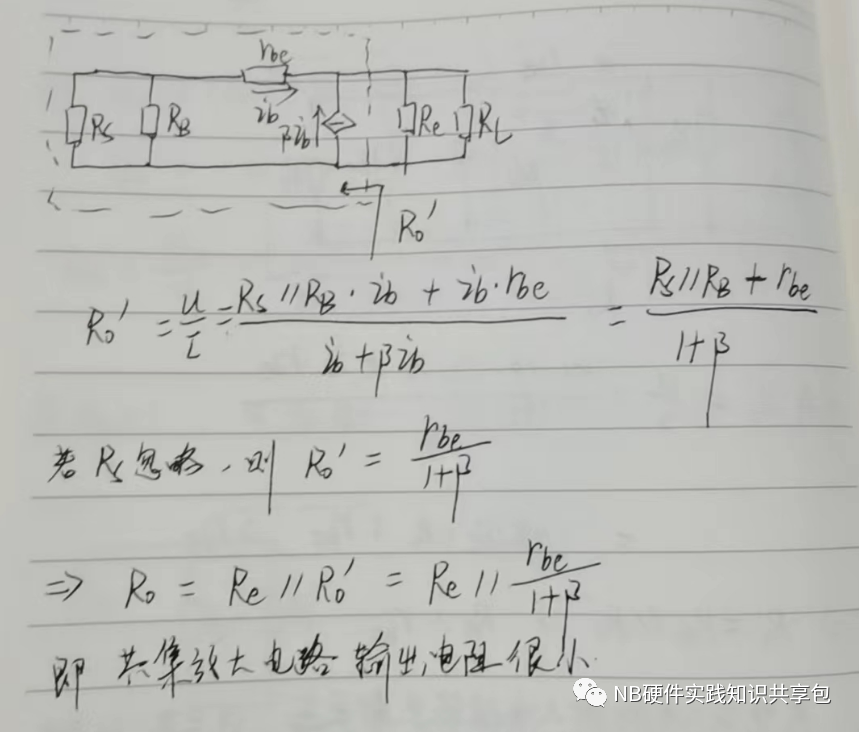 rbe
Rs RB ib βib Re RL
Ro'
Ro' = u/i = (Rs//RB·ib + ib·rbe)/(ib+βib) = (Rs//RB + rbe)/(1+β)
若 Rs忽略,则 Ro' = rbe/(1+β)
=> Ro = Re // Ro' = Re // rbe/(1+β)
即 共集放大电路输出电阻很小.
NB硬件实践知识共享包